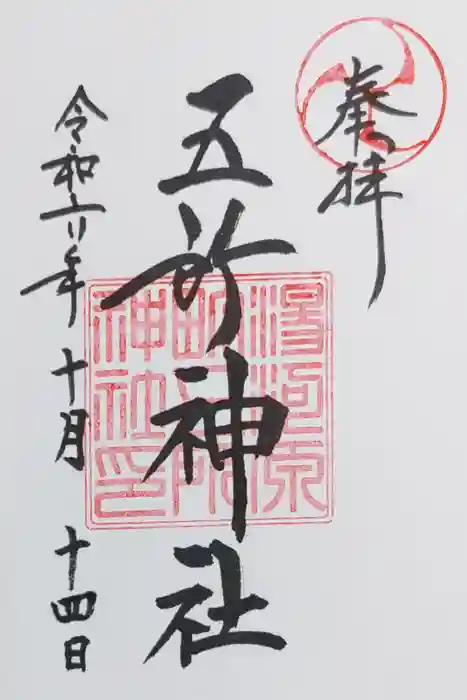 奉拝
五所神社
湯河原
町五所
神社印
令和六年
十月
十四日